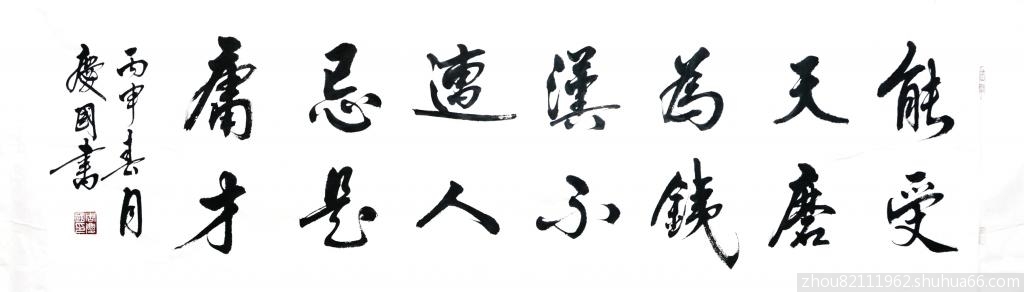 能受
天磨
為銕
漢不
遭人
忌是
庸才
丙申春月
慶國書
zhou82111962.shuhua66.com